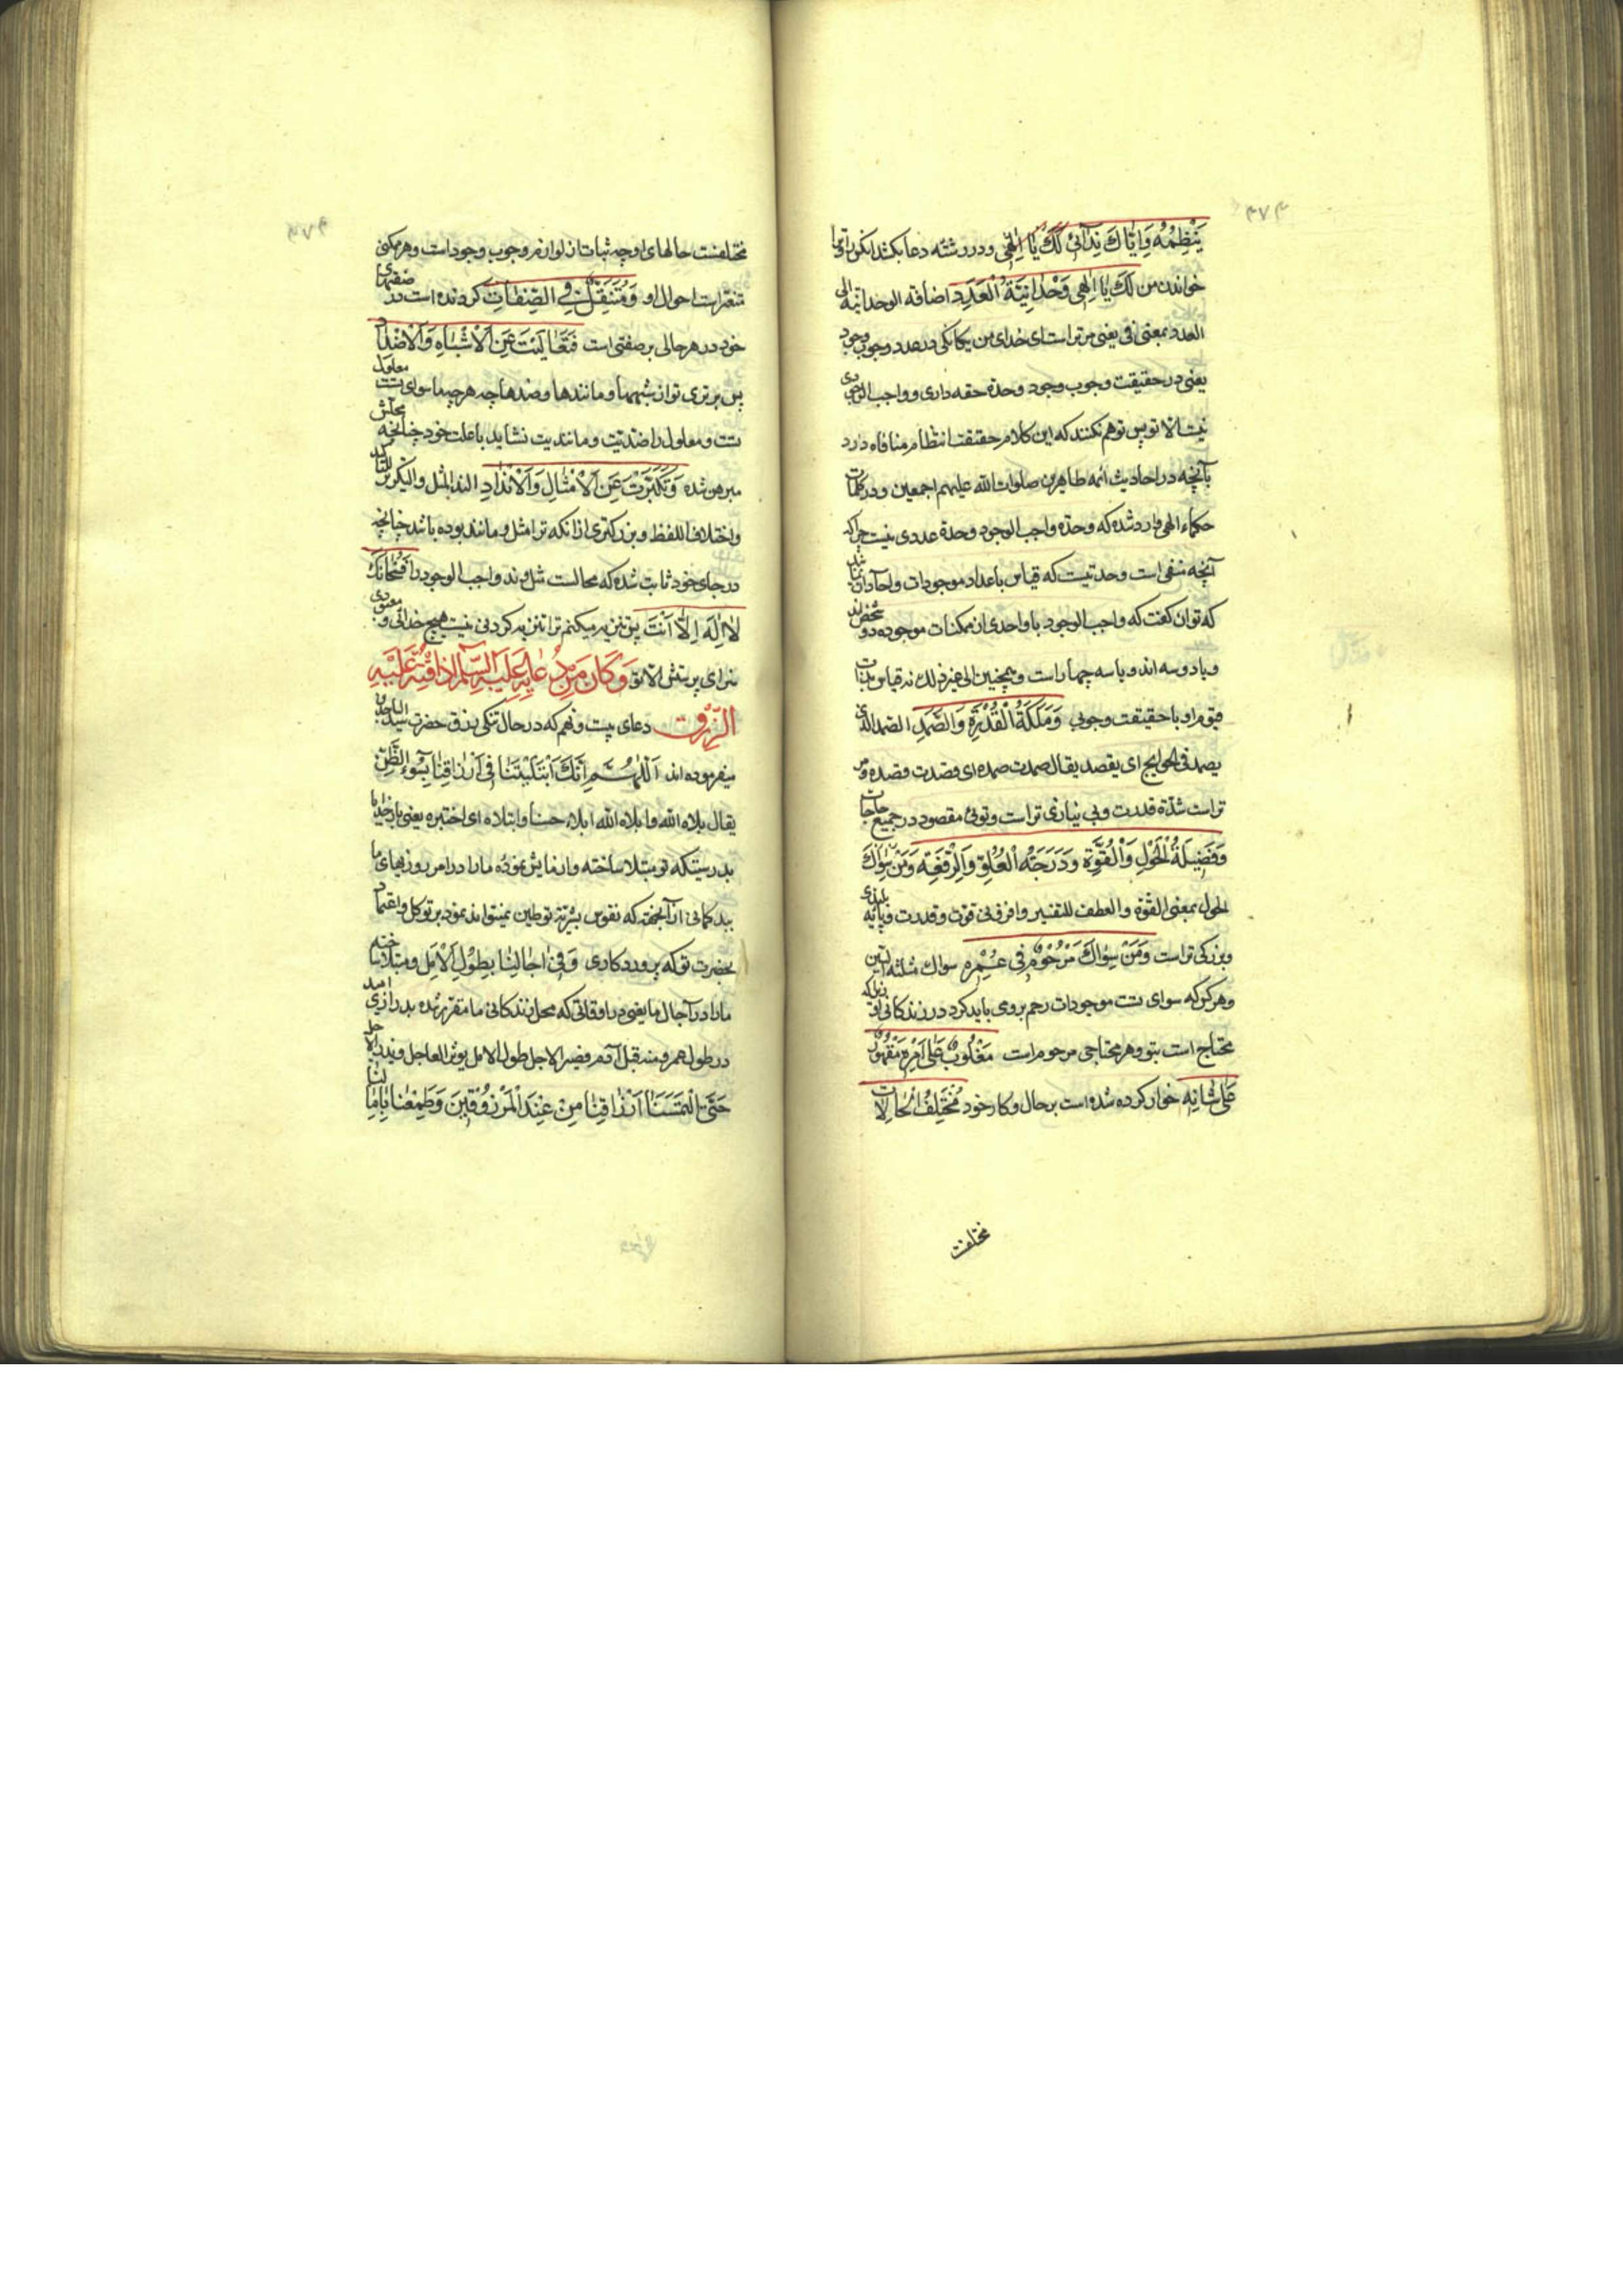 ۴۷۴
يَنْظِمُهُ وَاِيّاكَ نِدَآئى لَكَ يٰا اِلٰهى ودر رشته دعا بکشد انکس را تو را
خواندن من لَكَ يٰا اِلٰهى وَحْدٰانِيَّةُ الْعَدَدِ اضافه الوحدانیة الی
العدد بمعنی فی یعنی مر تراست ای خدای من یکانکی در عدد وجوب وجود
یعنی در حقیقت وجوب وجود وحدة حقه داری و واجب الوجودی
نیست الا تو پس توهم نکنند که این کلام حقیقت انتظام منافاه دارد
بآنچه در احادیث ائمه طاهرین صلوات الله علیهم اجمعین ودر کلمات
حکماء الهی وارد شده که وحدة واجب الوجود وحدة عددی نیست چراکه
آنچه منفی است وحدتیست که قیاس باعداد موجودات واحاد آن باشد
که توان کفت که واجب الوجود با واحدی از ممکنات موجوده دو شخص اند
ویا دو سه اند ویا سه چهار است وهمچنین الی غیر ذلک نه قیاس بذات
قیوم او باحقیقت وجوبی وَمَلَكَةُ الْقُدْرَةِ وَالصَّمَدِ الصمد الذی
یصمد فی الحوایج ای یقصد یقال صمدت صمده ای قصدت قصده ومر
تراست شدة قدرت وبی نیازی تراست وتوئی مقصود در جمیع حاجات
وَفَضيلَةُ الْحَوْلِ وَالْقُوَّةِ وَدَرَجَةُ الْعُلُوِّ وَالرِّفْعَةِ وَمَنْ سِوٰاكَ
الحول بمعنی القوة والعطف للتفسیر وافزونی قوت وقدرت وپایه بلندی
وبزرکی تراست وَمَنْ سِوٰاكَ مَرْحُومٌ فى عُمْرِهِ سواك مثلثه السین
وهر کس که سوای تست موجودات رحم بروی باید کرد در زندکانی او زیراکه
محتاج است بتو وهر محتاجی مرحوم است مَغْلُوبٌ عَلٰى اَمْرِهِ مَقْهُورٌ
عَلٰى شَانِهِ خوار کرده شده است بر حال وکار خود مُخْتَلِفُ الْحٰالاتِ
مختلفست
مختلفست حالهای او چه ثبات از لوازم وجوب وجود است وهر ممکنی
متغیر است احوال او وَمُتَنَقِّلٌ فِى الصِّفٰاتِ کردنده است در صفتهای
خود در هر حالی بر صفتی است فَتَعٰالَيْتَ عَنِ الْاَشْبٰاهِ وَالْاَضْدٰادِ
پس برتری تو از شبهها ومانندها وضدها چه هر چه ماسوای تست معلول
تست ومعلول را ضدتیت ومانندیت نشاید باعلت خود چنانچه محلش
مبرهن شده وَتَكَبَّرْتَ عَنِ الْاَمْثٰالِ وَالْاَنْدٰادِ الند المثل والتکریر للتاکید
واختلاف اللفظ وبزرکتری از آنکه ترا مثل ومانند بوده باشد چنانچه
در جای خود ثابت شده که محالست مثل وند واجب الوجود را فَسُبْحٰانَكَ
لاٰ اِلٰهَ اِلاّٰ اَنْتَ پس تنزیه میکنم ترا تنزیه کردنی نیست هیچ خدائی ومعبودی
سزای پرستش الا تو وَكٰانَ مِنْ دُعٰائِهِ عَلَيْهِ السَّلٰمُ اِذٰا قُتِّرَ عَلَيْهِ
الرِّزْقُ دعای بیست ونهم که در حال تنکی رزق حضرت سید الساجدین
میفرموده اند اَللّٰهُمَّ اِنَّكَ ابْتَلَيْتَنٰا فى اَرْزٰاقِنٰا بِسُوءِ الظَّنِّ
یقال بلاه الله وابلاه الله ابلاء حسنا وابتلاه ای اختبره یعنی بار خدایا
بدرستیکه تو مبتلا ساخته وآزمایش نموده ما را در امر روزیهای ما
ببد کمانی از آنجهت که نفوس بشریه توطین نمیتواند نمود بر توکل واعتماد
بحضرت تو که پروردکاری وَفى اٰجٰالِنٰا بِطُولِ الْاَمَلِ ومبتلا ساخته
ما را در آجال ما یعنی در اوقاتی که محل زندکانی ما مقرر شده بدرازی امید
در طول عمر ومنه قبل آفة وضر الاجل طول الامل یوثر العاجل ویذر الاجل
حَتَّى الْتَمَسْنٰا اَرْزٰاقَنٰا مِنْ عِنْدِ الْمَرْزُوقينَ وَطَمِعْنٰا بِاٰمٰالِنٰا